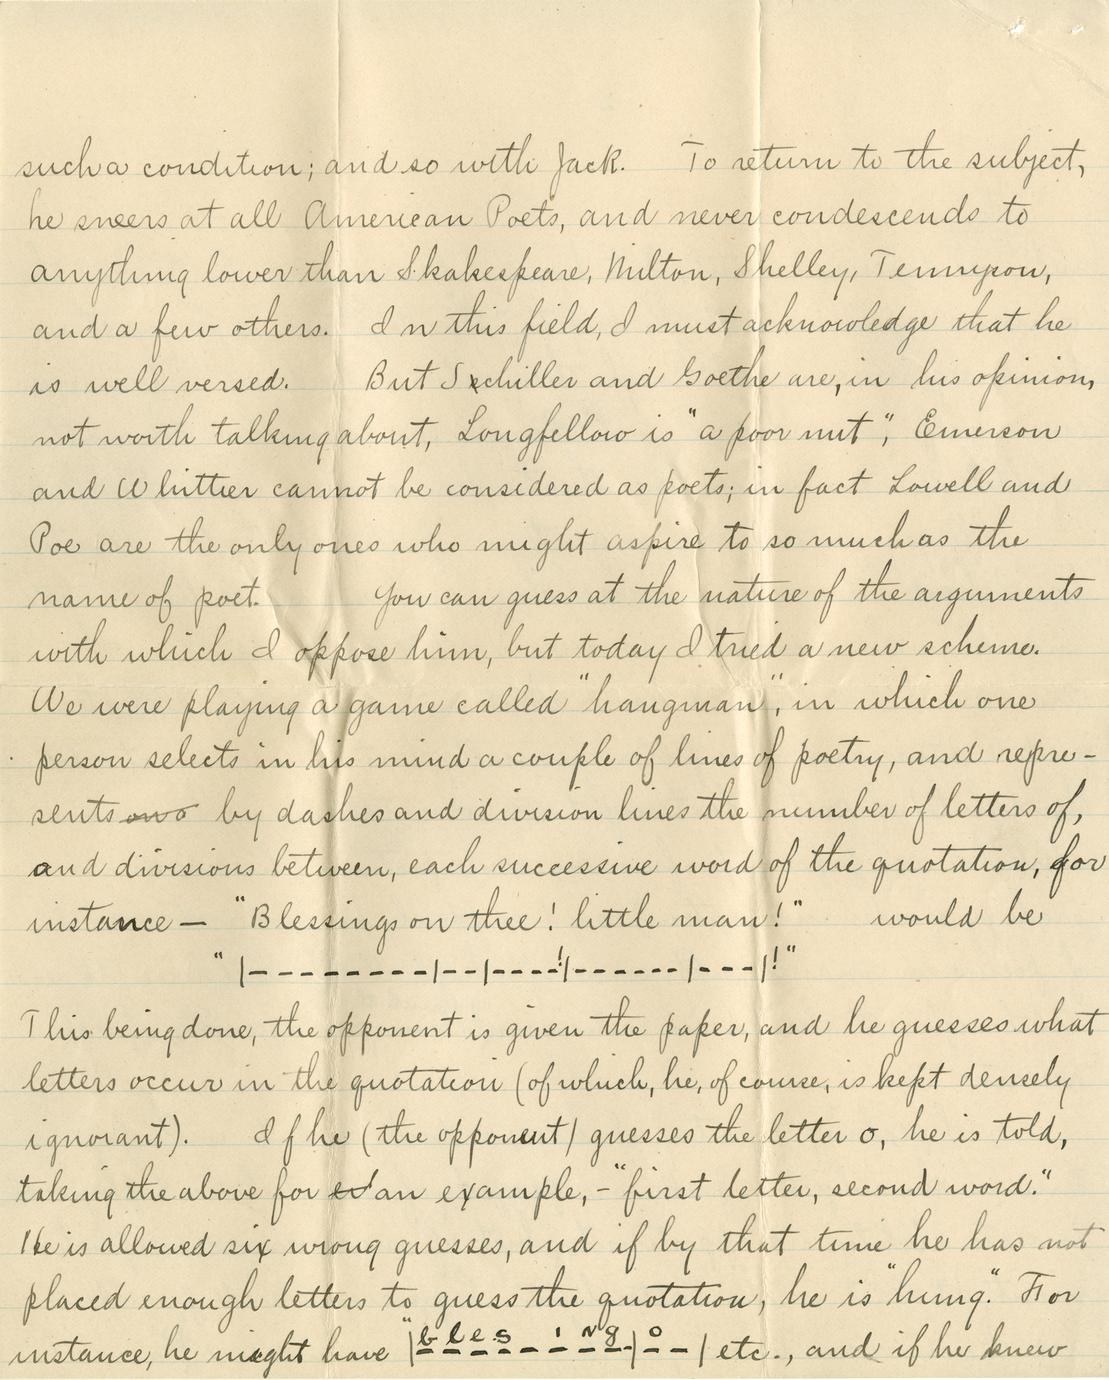 such a condition; and so with Jack. To return to the subject,
he sneers at all American Poets, and never condescends to
anything lower than Skakespeare, Milton, Shelley, Tennyson,
and a few others. In this field, I must acknowledge that he
is well versed. But Schiller and Goethe are, in his opinion,
not worth talking about, Longfellow is "a poor nut", Emerson
and Whittier cannot be considered as poets; in fact Lowell and
Poe are the only ones who might aspire to so much as the
name of poet. You can guess at the nature of the arguments
with which I oppose him, but today I tried a new scheme.
We were playing a game called "hangman", in which one
person selects in his mind a couple of lines of poetry, and repre-
sents by dashes and division lines the number of letters of,
and divisions between, each successive word of the quotation, for
instance — "Blessings on thee! little man!" would be
"|---------|--|----!|------|---|!"
This being done, the opponent is given the paper, and he guesses what
letters occur in the quotation (of which, he, of course, is kept densely
ignorant). If he (the opponent) guesses the letter o, he is told,
taking the above for an example, - "first letter, second word."
He is allowed six wrong guesses, and if by that time he has not
placed enough letters to guess the quotation, he is "hung." For
instance, he might have "|b l e s _ i n g _|o _| etc., and if he knew